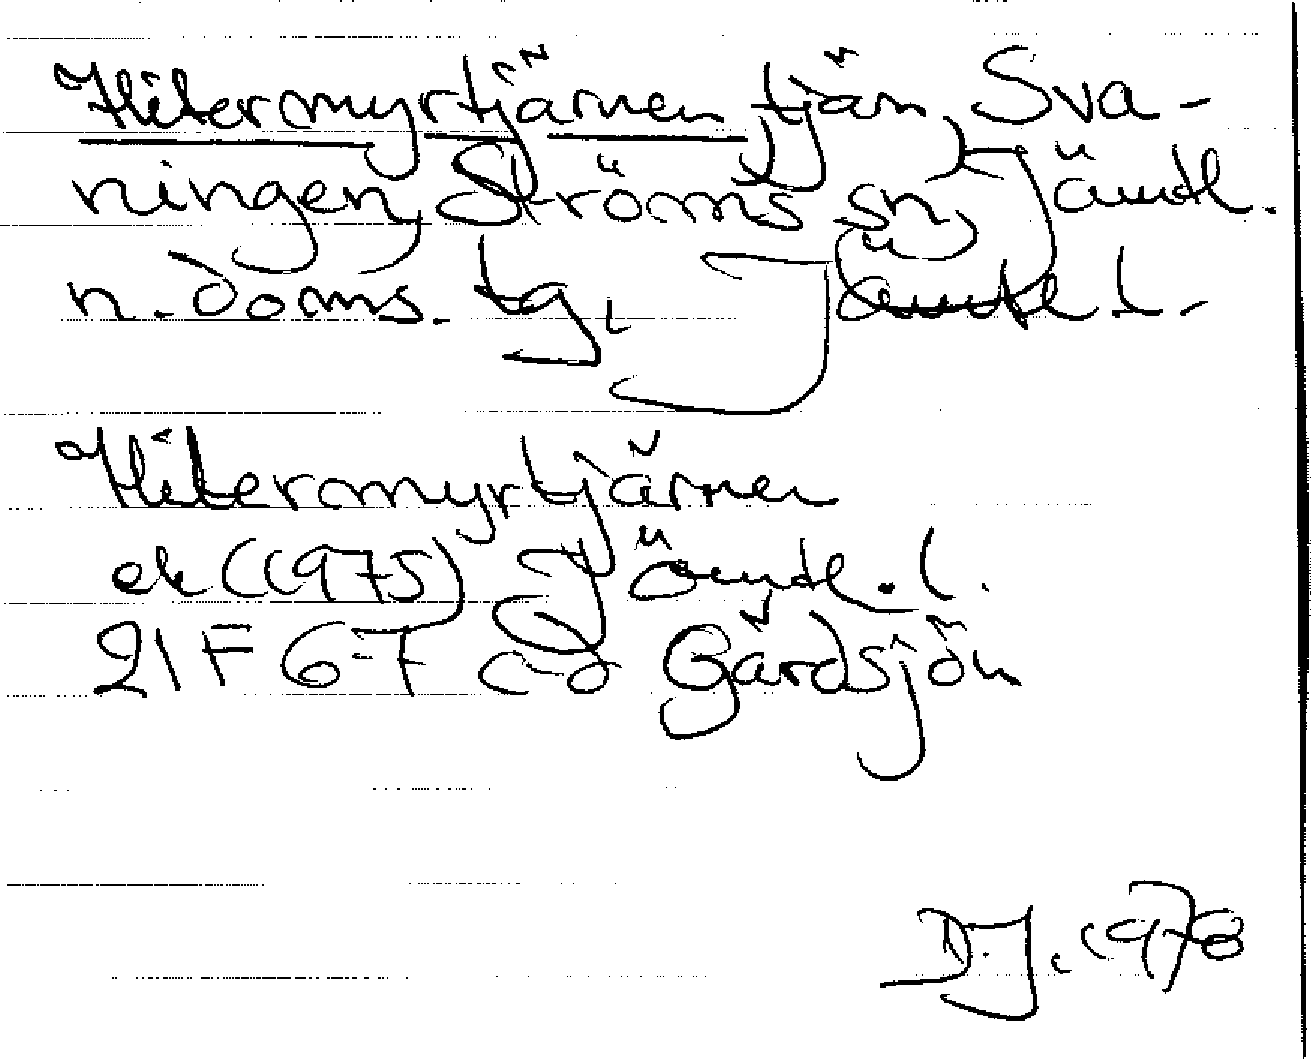 Hitermyrtjärnen tjärn, Sva-
ningen, Ströms sn, Jämtl.
n. doms. tg, Jämtl l.
Hitermyrtjärnen
ek (1975) Jämtl. l.
21 F 6-7 c-d Gärdsjön
D.J. 1978